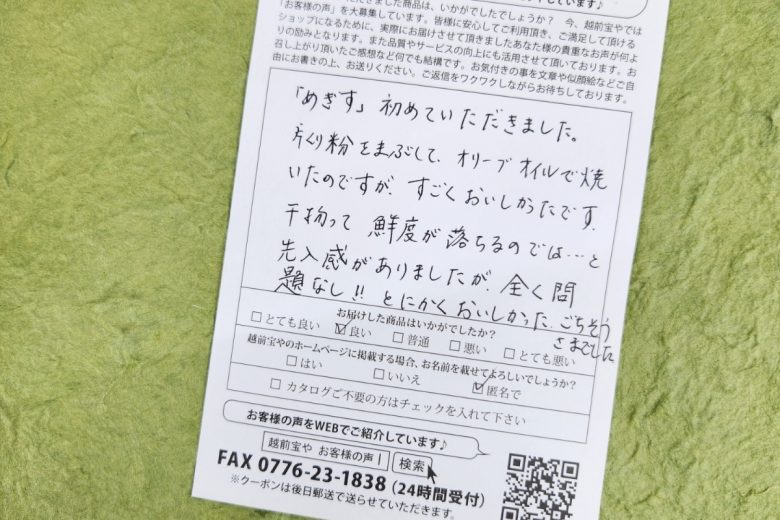 しています♪
ただきました商品は、いかがでしたでしょうか？ 今、越前宝やでは
「お客様の声」を大募集しています。皆様に安心してご利用頂き、ご満足して頂ける
ショップになるために、実際にお届けさせて頂きましたあなた様の貴重なお声が何よ
りの励みとなります。また品質やサービスの向上にも活用させて頂いております。お
召し上がり頂いたご感想など何でも結構です。お気付きの事を文章や似顔絵などご自
由にお書きの上、お送りください。ご返信をワクワクしながらお待ちしております。
「めぎす」初めていただきました。
片くり粉をまぶして、オリーブオイルで焼
いたのですが、すごくおいしかったです。
干物って鮮度が落ちるのでは…と
先入感がありましたが、全く問
題なし!! とにかくおいしかった。ごちそう
さまでした
お届けした商品はいかがでしたか？
□とても良い ☑良い □普通 □悪い □とても悪い
越前宝やのホームページに掲載する場合、お名前を載せてよろしいでしょうか？
□はい □いいえ ☑匿名で
□カタログご不要の方はチェックを入れて下さい
お客様の声をWEBでご紹介しています♪
越前宝や お客様の声 検索
FAX 0776-23-1838（24時間受付）
※クーポンは後日郵送で送らせていただきます。